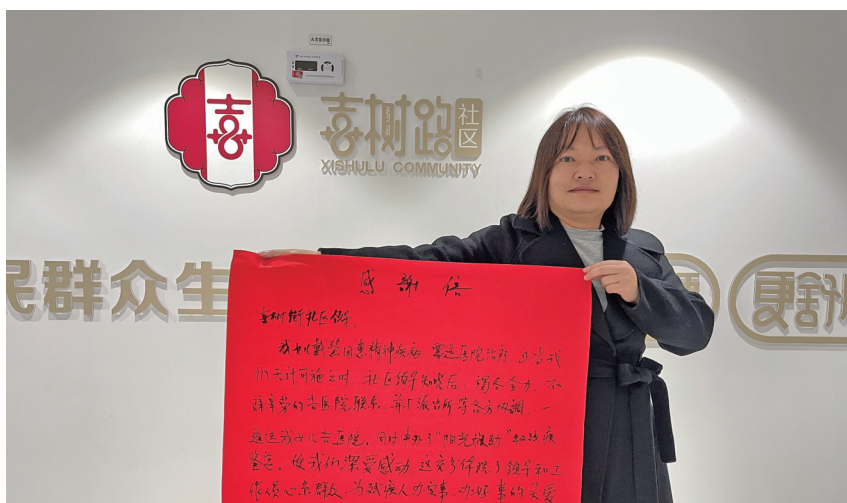 喜
喜树路
社区
XISHULU COMMUNITY
民群众生
更舒
感謝信
喜树街社区领导:
我女儿戴某因患精神疾病需送医院治疗,正当我
们无计可施之时,社区领导知晓后,竭尽全力,不
辞辛劳的去医院联系,并与派出所等各方协调,一
道送我女儿去医院,同时申办了“阳光救助”和残疾
鉴定,使我们深受感动,这充分体现了领导和工
作人员心系群众,为残疾人办实事、办好事的关爱